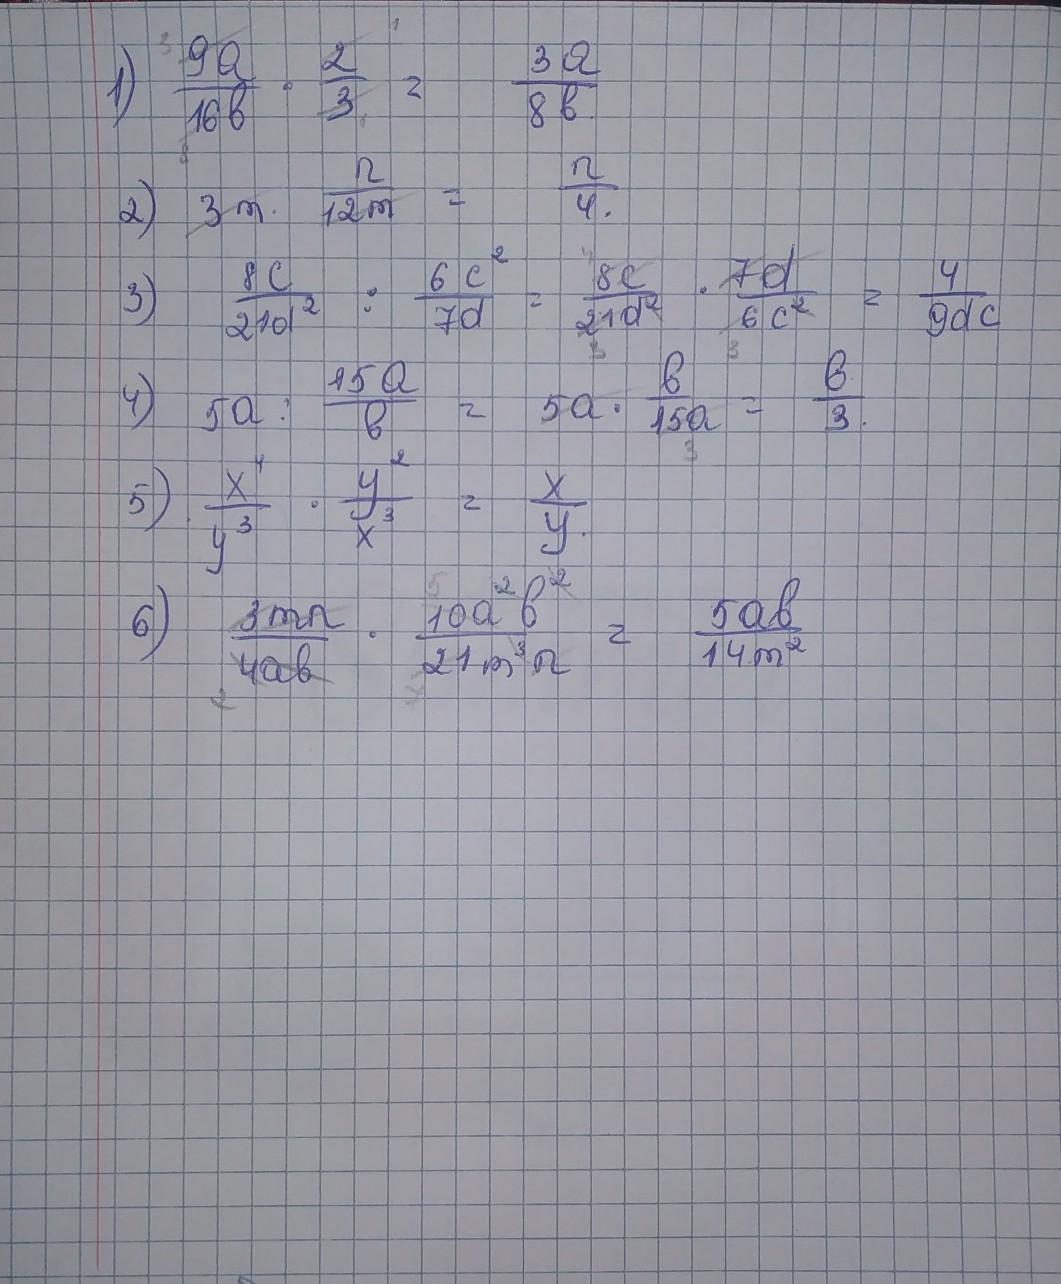 1) 9a/16b · 2/3 = 3a/8b
2) 3m · n/12m = n/4
3) 8c/21d² : 6c²/7d = 8c/21d² · 7d/6c² = 4/9dc
4) 5a : 15a/b = 5a · b/15a = b/3
5) x⁴/y³ · y²/x³ = x/y
6) 3mn/4ab · 10a²b²/21m³n = 5ab/14m²